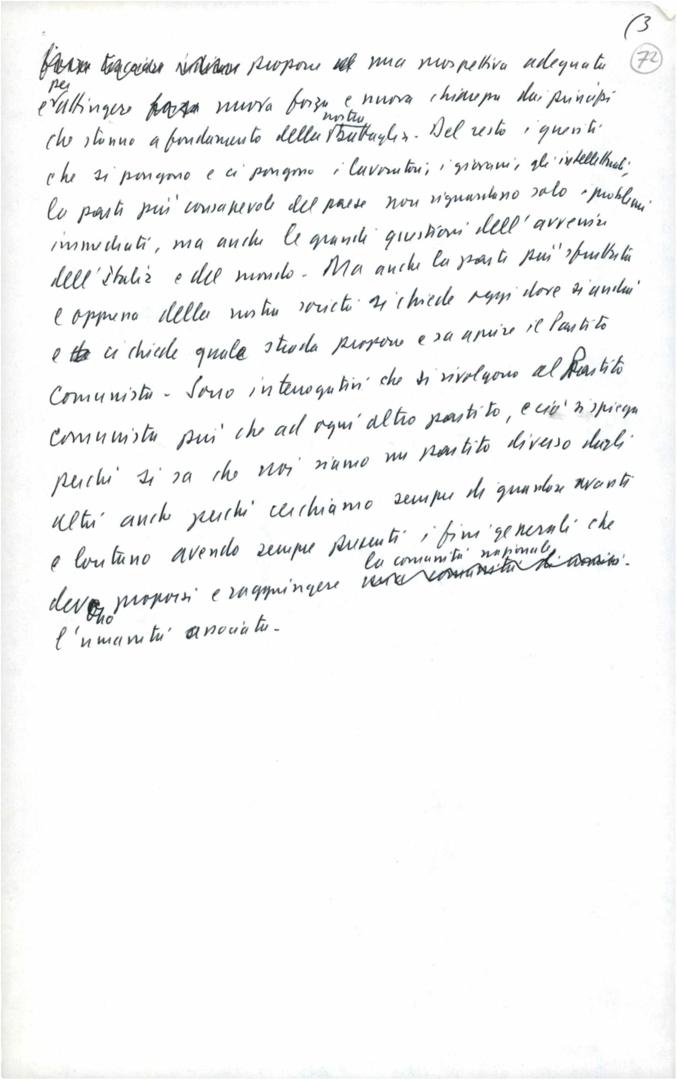 (3
72
propone una prospettiva adeguata
per
e attingere nuova forza e nuova chiarezza dai principi
nostra
che stanno a fondamento della battaglia. Del resto i quesiti
che si pongono e ci pongono i lavoratori, i giovani, gli intellettuali,
la parte più consapevole del paese non riguardano solo i problemi
immediati, ma anche le grandi questioni dell'avvenire
dell'Italia e del mondo. Ma anche la parte più sfruttata
e oppressa della nostra società si chiede oggi dove si andrà
e ci chiede quale strada propone e sa aprire il Partito
Comunista. Sono interrogativi che si rivolgono al Partito
comunista più che ad ogni altro partito, e ciò si spiega
perché si sa che noi siamo un partito diverso dagli
altri anche perché cerchiamo sempre di guardare avanti
e lontano avendo sempre presenti i fini generali che
la comunità nazionale
devono proporsi e raggiungere
l'umanità associata.